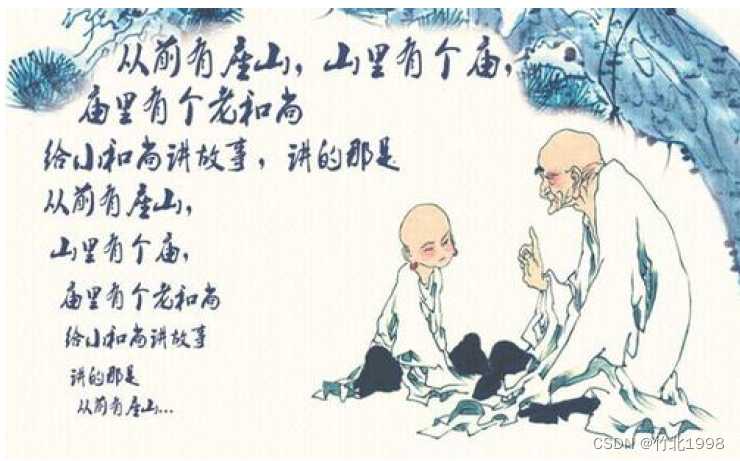 从前有座山，山里有个庙，
庙里有个老和尚
给小和尚讲故事，讲的那是
从前有座山，
山里有个庙，
庙里有个老和尚
给小和尚讲故事
讲的那是
从前有座山...
CSDN @竹北1998